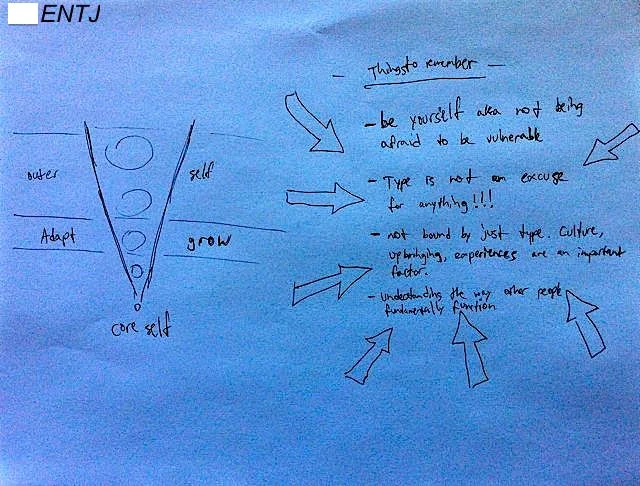 ENTJ
- Things to remember -
outer self
Adapt grow
core self
- be yourself aka not being
afraid to be vulnerable
- Type is not an excuse
for anything!!!
- not bound by just type. Culture,
upbringing, experiences are an important
factor.
- understanding the way other people
fundamentally function